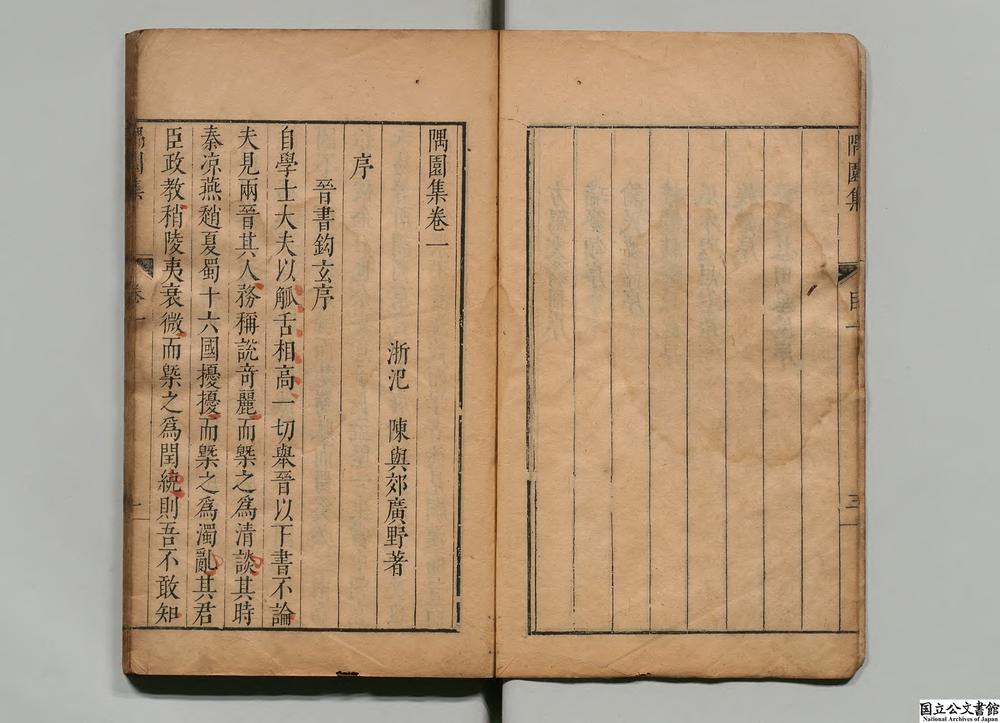 隅園集
目一
三
隅園集卷一
浙汜　陳與郊廣野著
序
晉書鈎玄序
自學士大夫以觚舌相高一切舉晉以下書不論
夫見兩晉其人務稱說竒麗而槩之爲清談其時
秦凉燕趙夏蜀十六國擾擾而槩之爲濁亂其君
臣政教稍陵夷衰微而槩之爲閏統則吾不敢知
隅園集
卷一
一
国立公文書館
National Archives of Japan